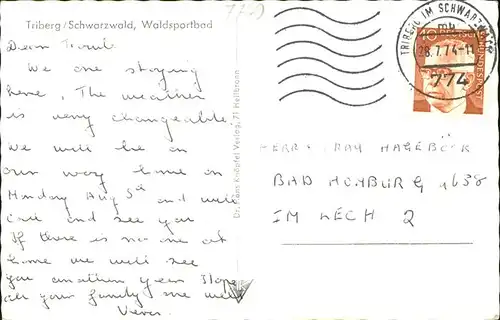 Triberg/Schwarzwald, Waldsportbad
We are staying
here, The weather
is very changeable
We will be on
our way home on
Monday Aug 5th and will
call and see you
If there is no one at
home we will see
you another year I hope
all your family are well
Dr. Hans Knöpfel Verlag, 71 Heilbronn
TRIBERG IM SCHWARZWALD
mb
28.7.74-11
774
40
DEUTSCHE BUNDESPOST
HERR + FRAU HAGEBÖCK
BAD HOMBURG 1638
IM LECH 2